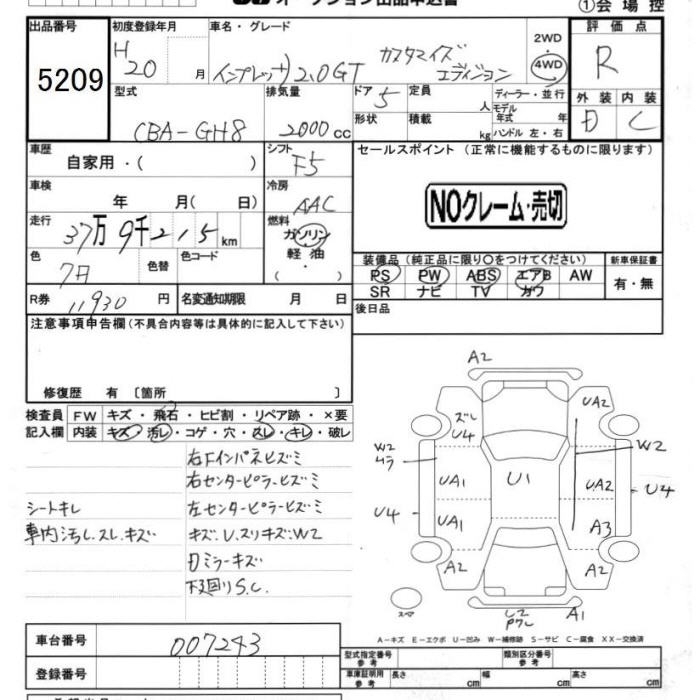 オークション出品申込書 ①会場控
出品番号 初度登録年月 車名・グレード 評価点
5209 H 20 月 インプレッサ 2.0GT カスタマイズエディション 2WD 4WD R
型式 排気量 ドア 定員 ディーラー・並行 外装 内装
CBA-GH8 2000 cc 5 人 モデル年式 年 D C
形状 積載 kg ハンドル 左・右
車歴 シフト セールスポイント (正常に機能するものに限ります)
自家用・( ) F5
車検 冷房
年 月( 日) AAC NOクレーム・売切
走行 燃料
37万9千215km ガソリン
軽油・
( )
色 色替 色コード 装備品 (純正品に限り○をつけてください) 新車保証書
PS PW ABS エアB AW 有・無
SR ナビ TV カワ
R券 11930 円 名変通知期限 月 日 後日品
注意事項申告欄(不具合内容等は具体的に記入して下さい)
修復歴 有 〔箇所 〕
検査員 FW キズ・飛石・ヒビ割・リペア跡・×要
記入欄 内装 キズ・汚レ・コゲ・穴・スレ・キレ・破レ
右Fインパネヒズミ
右センターピラーヒズミ
シートキレ 左センターピラーヒズミ
車内汚レ.スレ.キズ キズ.U.スリキズ.W2
ミラーキズ
下廻りS.C.
A2
ズレ
U4 UA2
W2 W2
UA1 U1 UA2 U4
U4 UA1 A3
A2 A2
A1
A-キズ E-エクボ U-凹み W-補修跡 S-サビ C-腐食 XX-交換済
車台番号 007243
登録番号
型式指定番号 参考 類別区分番号 参考
車庫証明用 参考 長さ cm 幅 cm 高さ cm